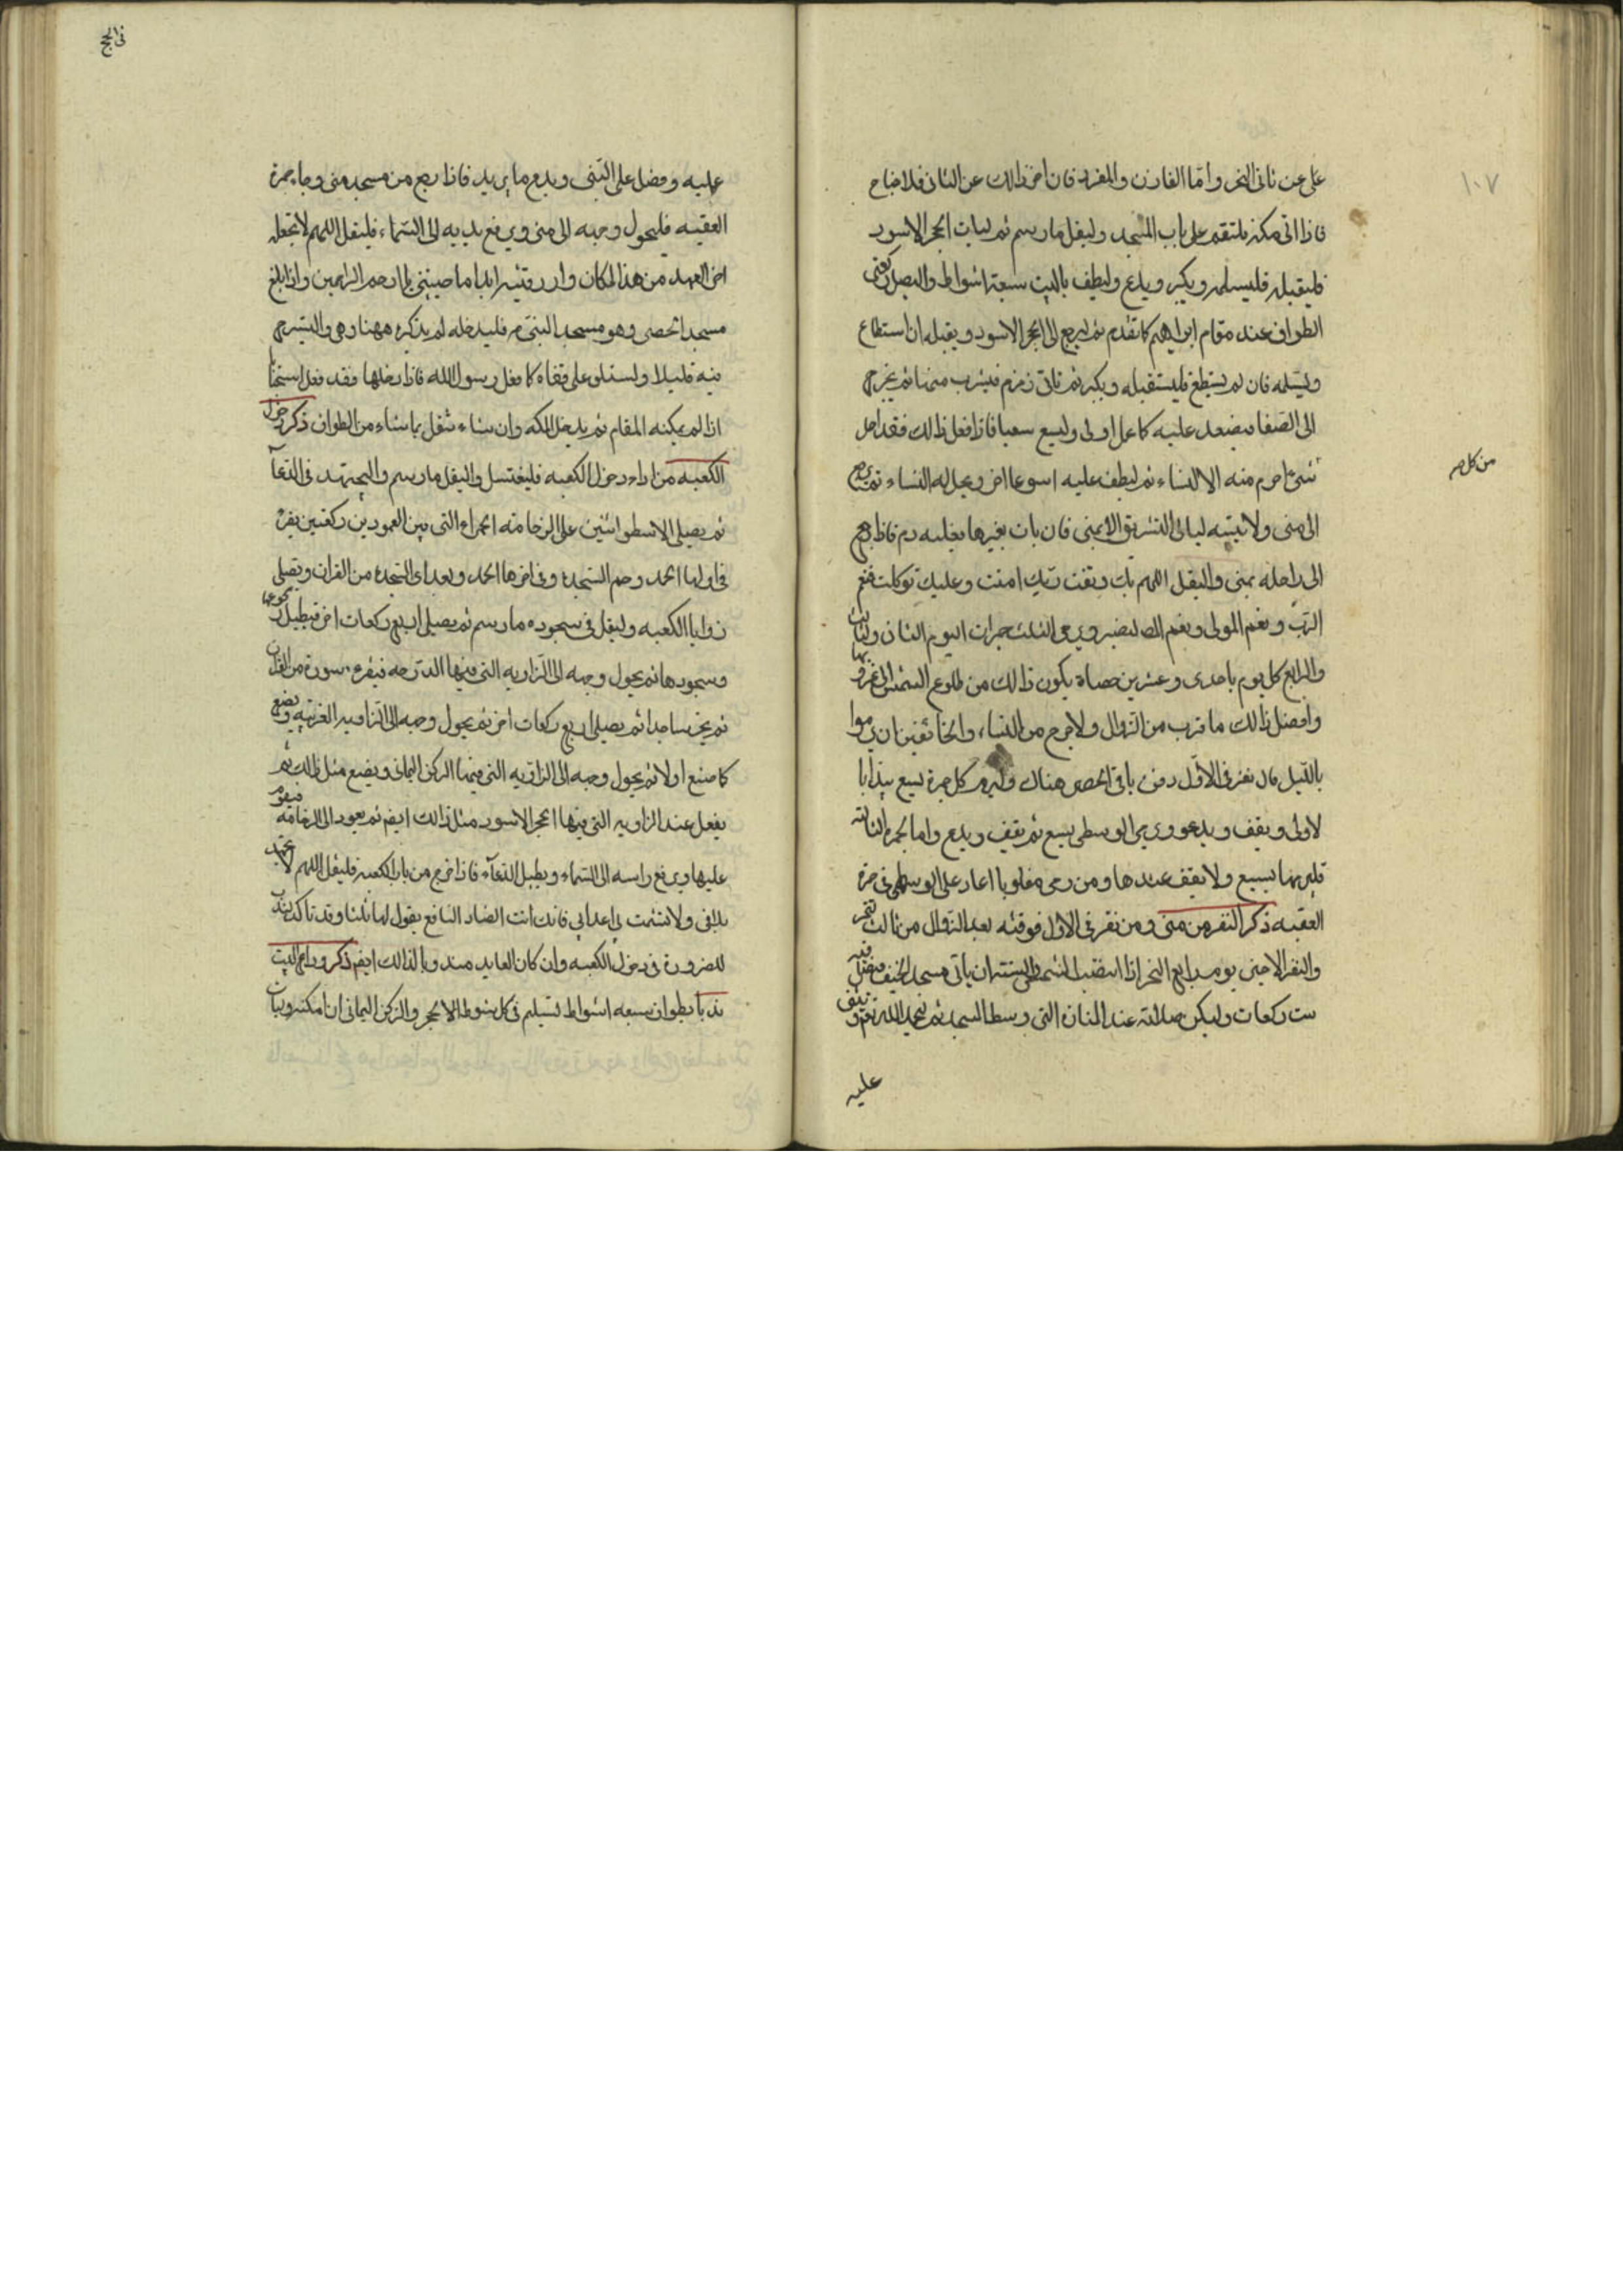 ١٠٧
على عن ثانى النحر وامّا القارن والمفرد فان اخر ذالك عن الثانى فلا جناح
فاذا اتى مكة فليقم على باب المسجد وليقل مارسم ثم ليات الحجر الاسود
فليقبله فليسلمه ويكبر ويدع وليطف بالبيت سبعة اشواط واليصل ركعتى
الطواف عند مقام ابراهيم كما تقدم ثم ليرجع الى الحجر الاسود ويقبله ان استطاع
ويستلمه فان لم يستطع فليستقبله ويكبر ثم ياتى زمزم فيشرب منها ثم يخرج
الى الصفا فيصعد عليه كما عمل اولى وليسع سعيا فاذا فعل ذالك فقد احل
من كل
شئ احرم منه الا النساء ثم ليطف عليه اسبوعا اخر ويحل له النساء ثم يرجع
الى منى ولا يبيته ليالى التشريق الا بمنى فان بات بغيرها فعليه دم فاذا رجع
الى راحله بمنى واليقل اللهم بك وثقت وبك امنت وعليك توكلت فنعم
الرّب ونعم المولى ونعم النصير ويرمى الثلث جمرات اليوم الثانى والثالث
والرابع كل يوم باحدى وعشرين حصاة يكون ذالك من طلوع الشمس الى غروبها
وافضل ذالك ما قرب من الزوال ولا حرج من النساء والخائفين ان يرموا
بالليل فان نفر فى الاوّل دفن باقى الحصى هناك وليرم كل جمرة بسبع يبدا با
لاولى ويقف ويدعو ويرمى الوسطى بسبع ثم يقف ويدع واما الجمرة الثالثة
فليرمها بسبيع ولا يقف عندها ومن رمى مقلوبا اعاد على الوسطى فى جمرة
العقبه ذكر النفر من منى ومن نفر فى الاول فوقته بعد الزوال من ثالث النحر
والنفر الاخير يوم رابع النحر اذا ابيضت الشمس والسنته ان ياتى مسجد الخيف فيصلى فيه
ست ركعات وليكن صلاته عند المنارة التى وسط المسجد ثم ليحمد الله ثم ويثنى
عليه
فى الحج
عليه وصل على النبى ويدع ما يريد فاذا رجع من مسجد منى وجا جمرة
العقبه فليحول وجهه الى منى ويرفع يديه الى السماء فليقل اللهم لا تجعله
اخر العهد من هذا المكان وارزقنيه ابدا ما حييتنى يا ارحم الراحمين واذا بلغ
مسجد الحصى وهو مسجد النبى م فليدخله لم يذكره ههنا وهى واليسترح
فيه قليلا وليستلق على قفاه كما فعل رسول الله فاذا دخلها فقد فعل استحبابا
اذا لم يمكنه المقام ثم يدخل المكه وان شاء تنفل بما شاء من الطواف ذكر دخول
الكعبه من اراد دخول الكعبه فليغتسل واليقل مارسم واليجتهد فى الدعآ
ثم يصلى الاسطوانتين على الرخامة الحمراء التى بين العمودين ركعتين يقرء
فى اولها الحمد وحم السجدة وفى اخرها الحمد وبعد اى السجدة من القران ويصلى
زوايا الكعبه وليقل فى سجوده مارسم ثم يصلى اربع ركعات اخر فيطيل ركوعها
وسجودها ثم يحول وجهه الى الزاويه التى فيها الدرجه فيقرء سورة من القران
ثم يخر ساجدا ثم يصلى اربع ركعات اخر ثم يحول وجهه الى الزاويه الغربيه ويضع
كما صنع اولا ثم يحول وجهه الى الزاويه التى فيها الركن اليمانى ويضع مثل ذالك ثم
يفعل عند الزاويه التى فيها الحجر الاسود مثل ذالك ايضم ثم يعود الى الرخامه فيقوم
عليها ويرفع راسه الى السماء ويطيل الدعآء فاذا خرج من باب الكعبه فليقل اللهم لا تجهد
بلائى ولا تشمت بى اعدايى فانك انت الضار النافع يقول لها ثلثا وقد تاكد ندب
للضرورة فى دخول الكعبه وان كان العابد مندوبا لذالك ايضم ذكر وداع البيت
ندبا بطواف سبعه اشواط ليستلم فى كل شوط الحجر والركن اليمانى ان امكنه وبيان